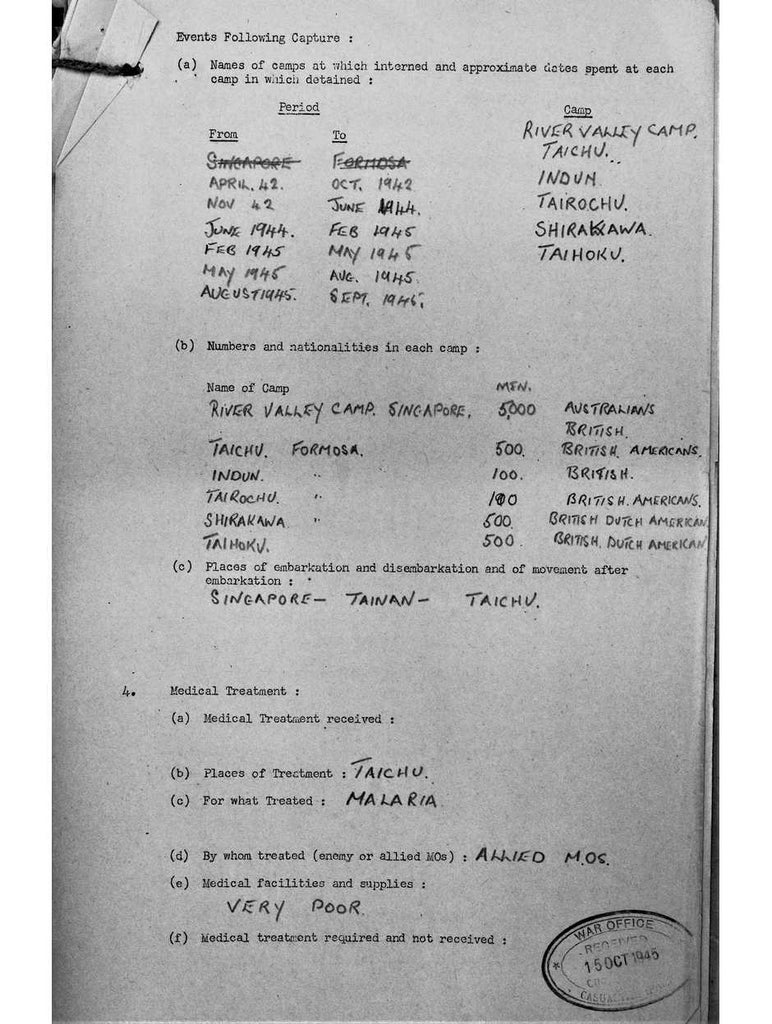 Events Following Capture :
(a) Names of camps at which interned and approximate dates spent at each
camp in which detained :
Period Camp
From To RIVER VALLEY CAMP.
SINGAPORE FORMOSA TAICHU.
APRIL. 42. OCT. 1942 INDUN
NOV 42 JUNE 1944. TAIROCHU.
JUNE 1944. FEB 1945 SHIRAKAWA.
FEB 1945 MAY 1945 TAIHOKU.
MAY 1945 AUG. 1945.
AUGUST 1945. SEPT. 1945.
(b) Numbers and nationalities in each camp :
Name of Camp MEN.
RIVER VALLEY CAMP. SINGAPORE. 5,000 AUSTRALIANS
BRITISH.
TAICHU. FORMOSA. 500. BRITISH. AMERICANS.
INDUN. " 100. BRITISH.
TAIROCHU. " 100 BRITISH. AMERICANS.
SHIRAKAWA " 500. BRITISH DUTCH AMERICAN
TAIHOKU. 500. BRITISH. DUTCH AMERICAN
(c) Places of embarkation and disembarkation and of movement after
embarkation :
SINGAPORE – TAINAN – TAICHU.
4. Medical Treatment :
(a) Medical Treatment received :
(b) Places of Treatment : TAICHU.
(c) For what Treated : MALARIA
(d) By whom treated (enemy or allied MOs) : ALLIED M.OS.
(e) Medical facilities and supplies :
VERY POOR.
(f) Medical treatment required and not received :
WAR OFFICE
RECEIVED
15 OCT 1945